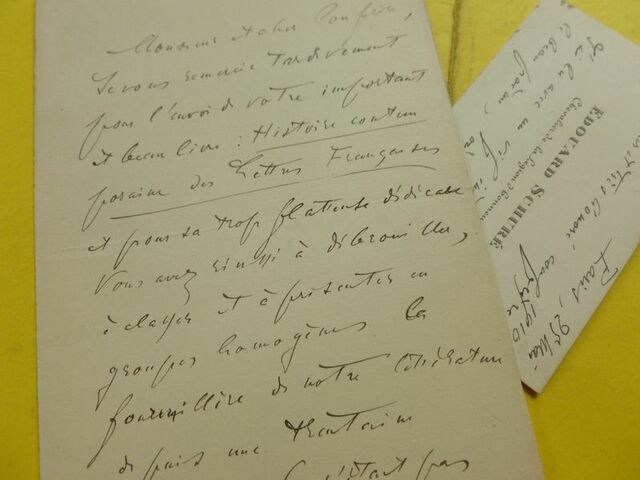 Monsieur et cher Confrère,
Je vous remercie tardivement
pour l'envoi de votre important
et beau livre : Histoire contem
poraine des Lettres Françaises
et pour sa trop flatteuse dédicace
Vous avez réussi à débrouiller,
à classer et à présenter en
groupes homogènes la
fourmillière de notre littérature
depuis une trentaine
C'était pas
J'ai lu avec un vif
ce beau poème,
EDOUARD SCHURÉ
Chevalier de la Légion d'honneur
et très honoré confrère
Paris, 25 Mai
1910